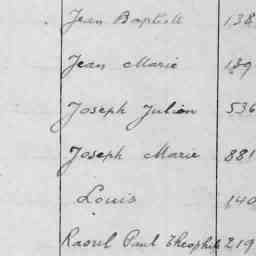 Jean Baptiste 138
Jean Marie 189
Joseph Julien 536
Joseph Marie 881
Louis 140
Raoul Paul Théophile 219